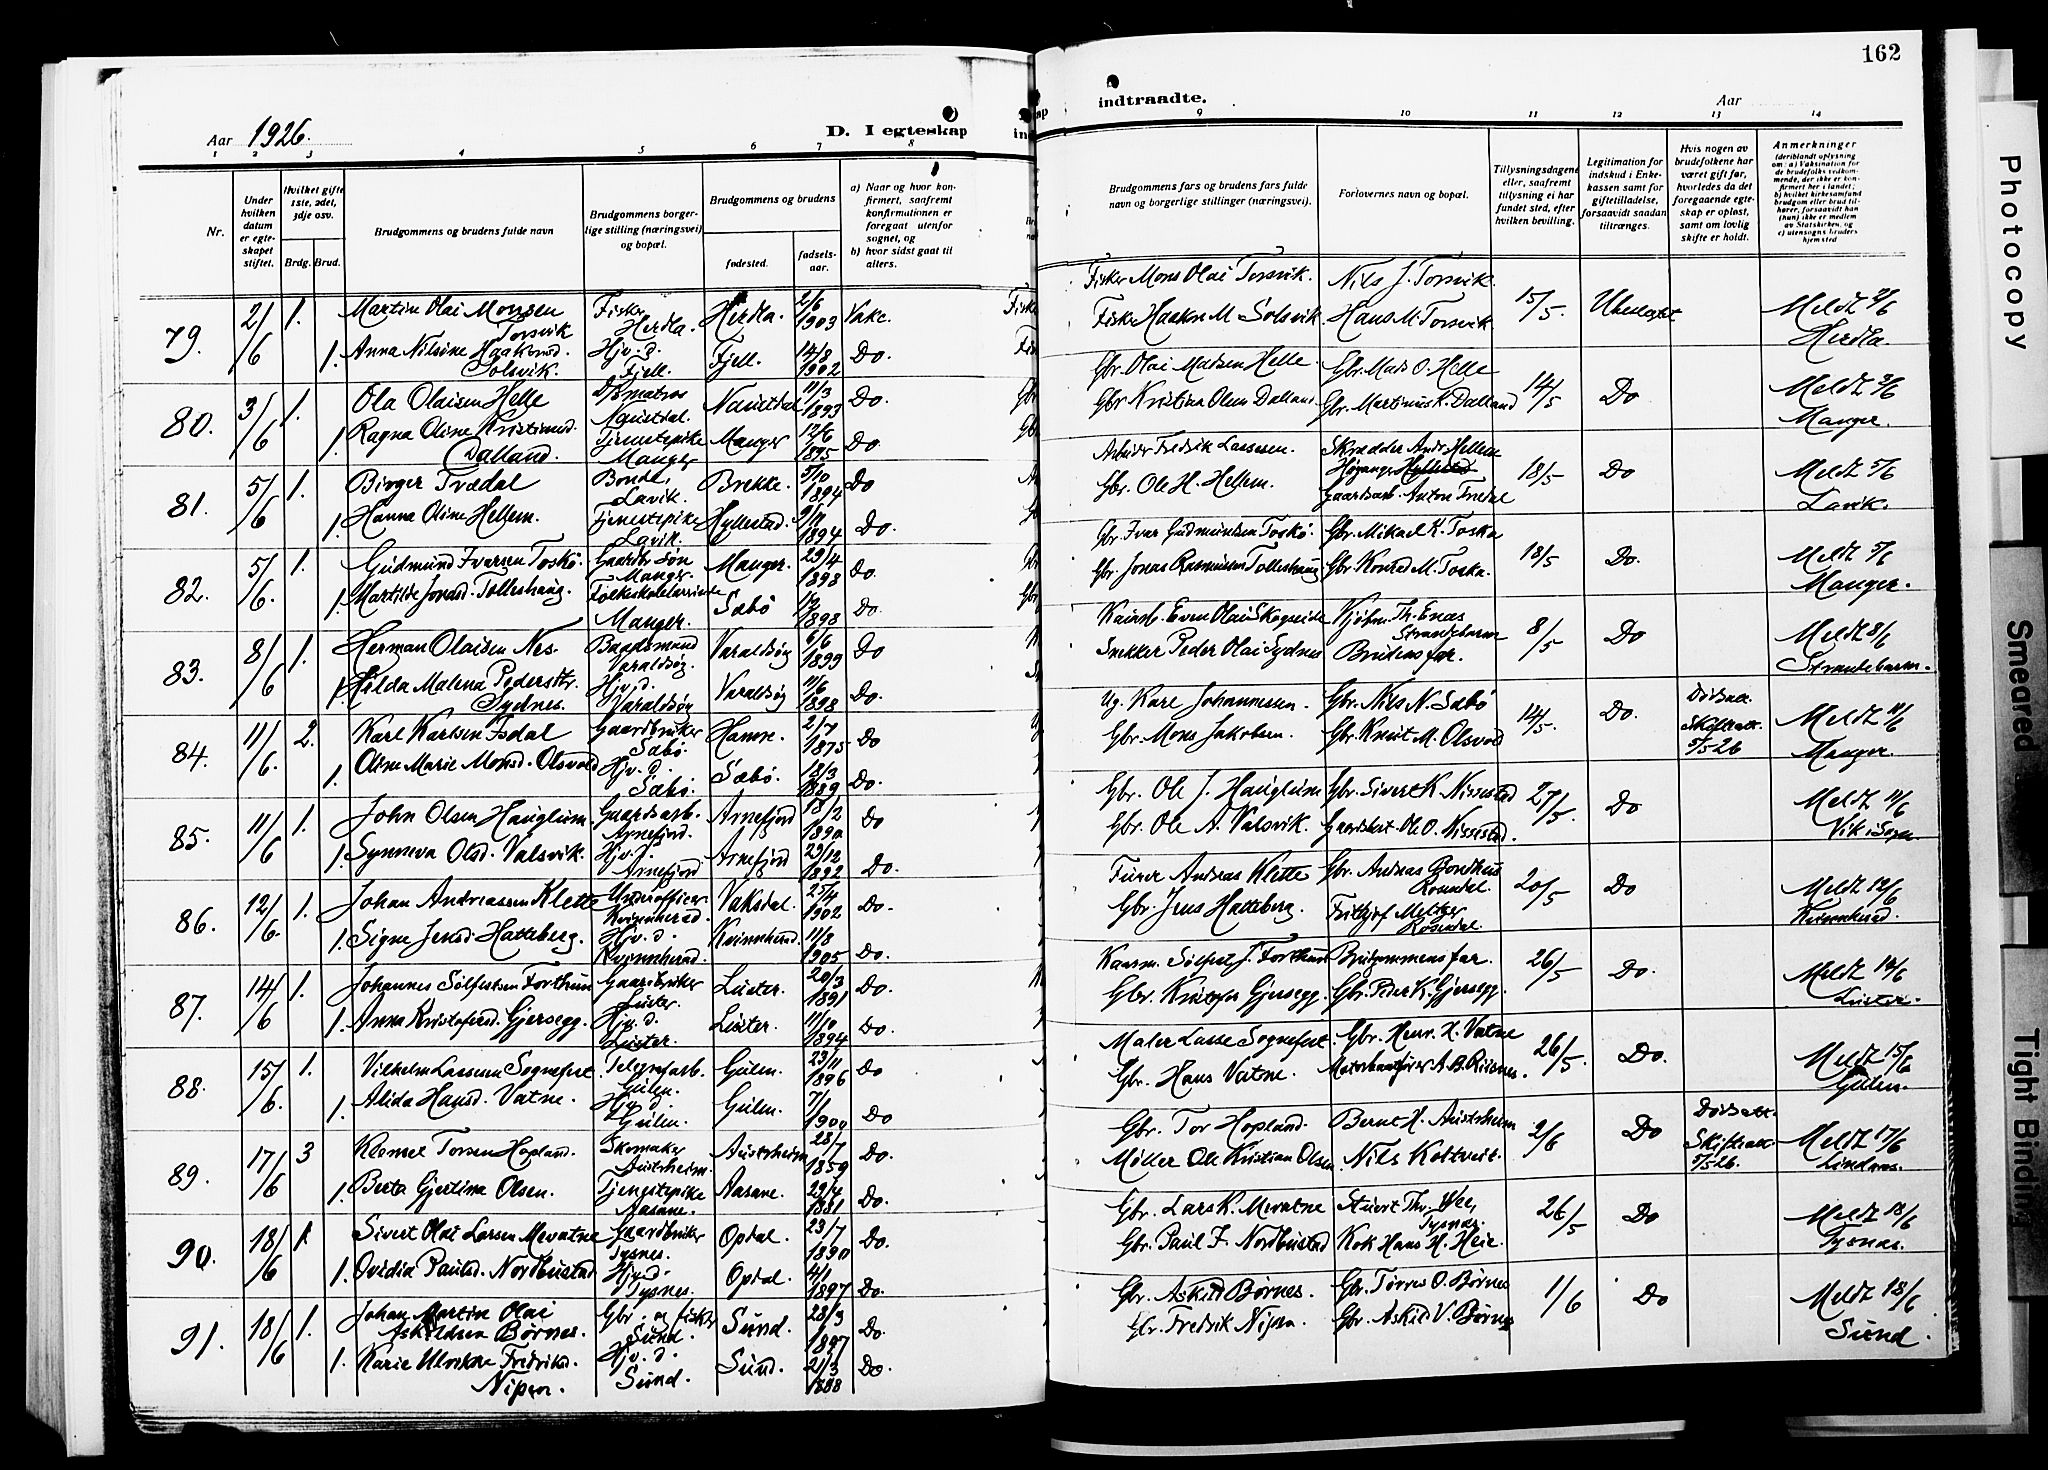 162
Aar 1926.
D. I egteskap
indtraadte.
Aar
1 2 3 4 5 6 7 8
9 10 11 12 13 14
Nr.
Under hvilken datum er egteskapet stiftet.
Hvilket gifte 1ste, 2det, 3dje osv.
Brdg. Brud.
Brudgommens og brudens fulde navn
Brudgommens borgerlige stilling (næringsvei) og bopæl.
Brudgommens og brudens
fødested.
fødselsaar.
a) Naar og hvor konfirmert, saafremt konfirmationen er foregaat utenfor sognet, og
b) hvor sidst gaat til alters.
Brudgommens fars og brudens fars fulde navn og borgerlige stillinger (næringsvei).
Forlovernes navn og bopæl.
Tillysningsdagene eller, saafremt tillysning ei har fundet sted, efter hvilken bevilling.
Legitimation for indskud i Enkekassen samt for giftetilladelse, forsaavidt saadan tiltrænges.
Hvis nogen av brudefolkene har været gift før, hvorledes da det foregaaende egteskap er opløst, samt om lovlig skifte er holdt.
Anmerkninger
79. 2/6 1. Martin Olai Monsen Torsvik Fisker Herdla. Herdla. 2/6 1903 Vake.
1. Anna Nilsine Haakonsd. Solsvik. Hjv. d. Fjell. Fjell. 14/8 1902 Do.
Fisker Mons Olai Torsvik. Nils J. Torsvik. 15/5. Meldt 2/6 Herdla.
Fisker Haakon M Solsvik Hans M. Torsvik.
80. 3/6 1. Ola Olaisen Helle Naustdal. Naustdal 11/3 1893 Do.
1. Ragna Oline Kristiansd. Dalland. Tjenestepike Manger Manger 12/6 1895 Do
Gbr. Olai Madsen Helle Gbr. Mads O. Helle 14/5 Do Meldt 3/6 Manger.
Gbr Kristian Olsen Dalland Gbr. Martinus K. Dalland
81. 5/6 1. Birger Tredal Bonde, Lavik. Brekke. 5/10 1894 Do
1. Hanna Oline Hellem. Tjenestepike Lavik. Hyllestad. 1894 Do.
Arbeider Fredrik Larssen. Skrædder Andr Hellem 18/5 Do Meldt 5/6 Lavik.
Gbr. Ole H. Hellem. Gaardsarb. Anton Tredal
82. 5/6. 1. Gudmund Ivarsen Toskø. Gaardbr. søn Manger. Manger. 29/4 1898 Do.
1. Martilde Jonasd. Tolleshaug. Manger. Sæbø 1898 Do.
Gbr. Ivar Gudmundsen Toskø. Gbr. Mikael K. Toska 18/5 Do. Meldt 5/6 Manger.
Gbr. Jonas Rasmussen Tolleshaug Gbr. Konrad M. Toska.
83. 8/6 1. Herman Olaisen Nes. Baadsmand Varaldsøy. Varaldsøy 6/6 1899 Do
1. Hilda Malena Pedersdtr. Sydnes. Hjv. d. Varaldsøy Varaldsøy 11/6 1898 Do.
Kaiarb. Even Olai Skogseide Kjøbm. Th. Enes Strandebarm 8/5 Do Meldt 8/6 Strandebarm.
Snekker Peder Olai Sydnes Brudens far.
84. 11/6. 2. Karl Karlsen Isdal Gaardbruker Sæbø. Hamre. 2/7 1875 Do
1. Oline Marie Monsd. Olsvold Hjv. d. Sæbø. Sæbø. 18/3 1889 Do.
Ug. Karl Johannessen. Gbr. Nils N. Sæbø 14/5. Do. Dødsatt. Skifteatt. 5/5 26 Meldt 11/6 Manger.
Gbr. Mons Jakobsen. Gbr. Knut M. Olsvold
85. 11/6 1. John Olsen Hauglum. Gaardsarb. Arnefjord. Arnefjord 18/2 1890 Do
1. Synneva Olsd. Valsvik. Hjv. d. Arnefjord Arnefjord 29/12 1892 Do.
Gbr. Ole J. Hauglum Gbr. Sivert K. Nissestad 27/5. Do Meldt 11/6 Vik i Sogn.
Gbr. Ole A. Valsvik. Ole O. Nissestad.
86. 12/6. 1. Johan Andreassen Klette Underofficer Kvinnherad. Vaksdal. 25/4 1902 Do.
1. Signe Jensd. Hatteberg. Hjv. d. Kvinnherad. Kvinnherad. 11/8 1905 Do.
Furer Andreas Klette Gbr. Andreas Bondhus Rosendal. 20/5 Do Meldt 12/6 Kvinnherad.
Gbr. Jens Hatteberg. Fritjof Meltzer Rosendal.
87. 14/6 1. Johannes Sølfestsen Forthun Gaardbruker Luster. Luster. 20/3 1891 Do.
1. Anna Kristofersd. Gjersegg. Hjv. d. Luster. Luster. 11/10 1894 Do.
Sølfest J. Forthun Brudgommens far. 26/5 Do. Meldt 14/6 Luster.
Gbr. Kristofer Gjersegg. Gbr. Peder K. Gjersegg.
88. 15/6. 1. Vilhelm Lassesen Sognefest Telegrafarb. Gulen. Gulen. 23/11 1896 Do
1. Alida Hansd. Vatne. Hjv. d. Gulen. Gulen. 7/1 1900 Do
Maler Lasse Sognefest. Gbr. Henr. H. Vatne 26/5. Do. Meldt 15/6 Gulen.
Gbr. Hans Vatne. A. B. Risnes.
89. 17/6 3 Klemet Torsen Hopland. Skomaker Austrheim. Austrheim 28/7 1859 Do.
1. Berta Gjertina Olsen. Tjenestepike Aasane. Aasane. 29/4 1881 Do.
Gbr. Tor Hopland. Bernt H. Austrheim 2/6 Do Dødsatt. Skifteatt. 5/5 26. Meldt 17/6 Lindaas.
Møller Ole Kristian Olsen. Nils Kottveit.
90. 18/6 1. Sivert Olai Larsen Mevatne Gaardbruker Tysnes. Opdal. 23/7 1890 Do.
1. Ovidia Paulsd. Nordbustad Hjv. d. Tysnes. Opdal. 4/1 1897 Do.
Gbr. Lars K. Mevatne Stuert Th. Wee, Tysnes. 26/5 Do Meldt 18/6 Tysnes.
Gbr. Paul J. Nordbustad Kok Hans H. Heie.
91. 18/6 1. Johan Martin Olai Askildsen Børnes. Gbr. og fisker Sund. Sund. 28/3 1897 Do.
1. Karie Ulrikke Fredriksd. Nipen. Hjv. d. Sund. Sund. 21/3 1888 Do.
Gbr. Askild Børnes. Gbr. Tørres O. Børnes 1/6 Do Meldt 18/6 Sund.
Gbr. Fredrik Nipen. Gbr. Askild V. Børnes
Photocopy
Smeared
Tight Binding